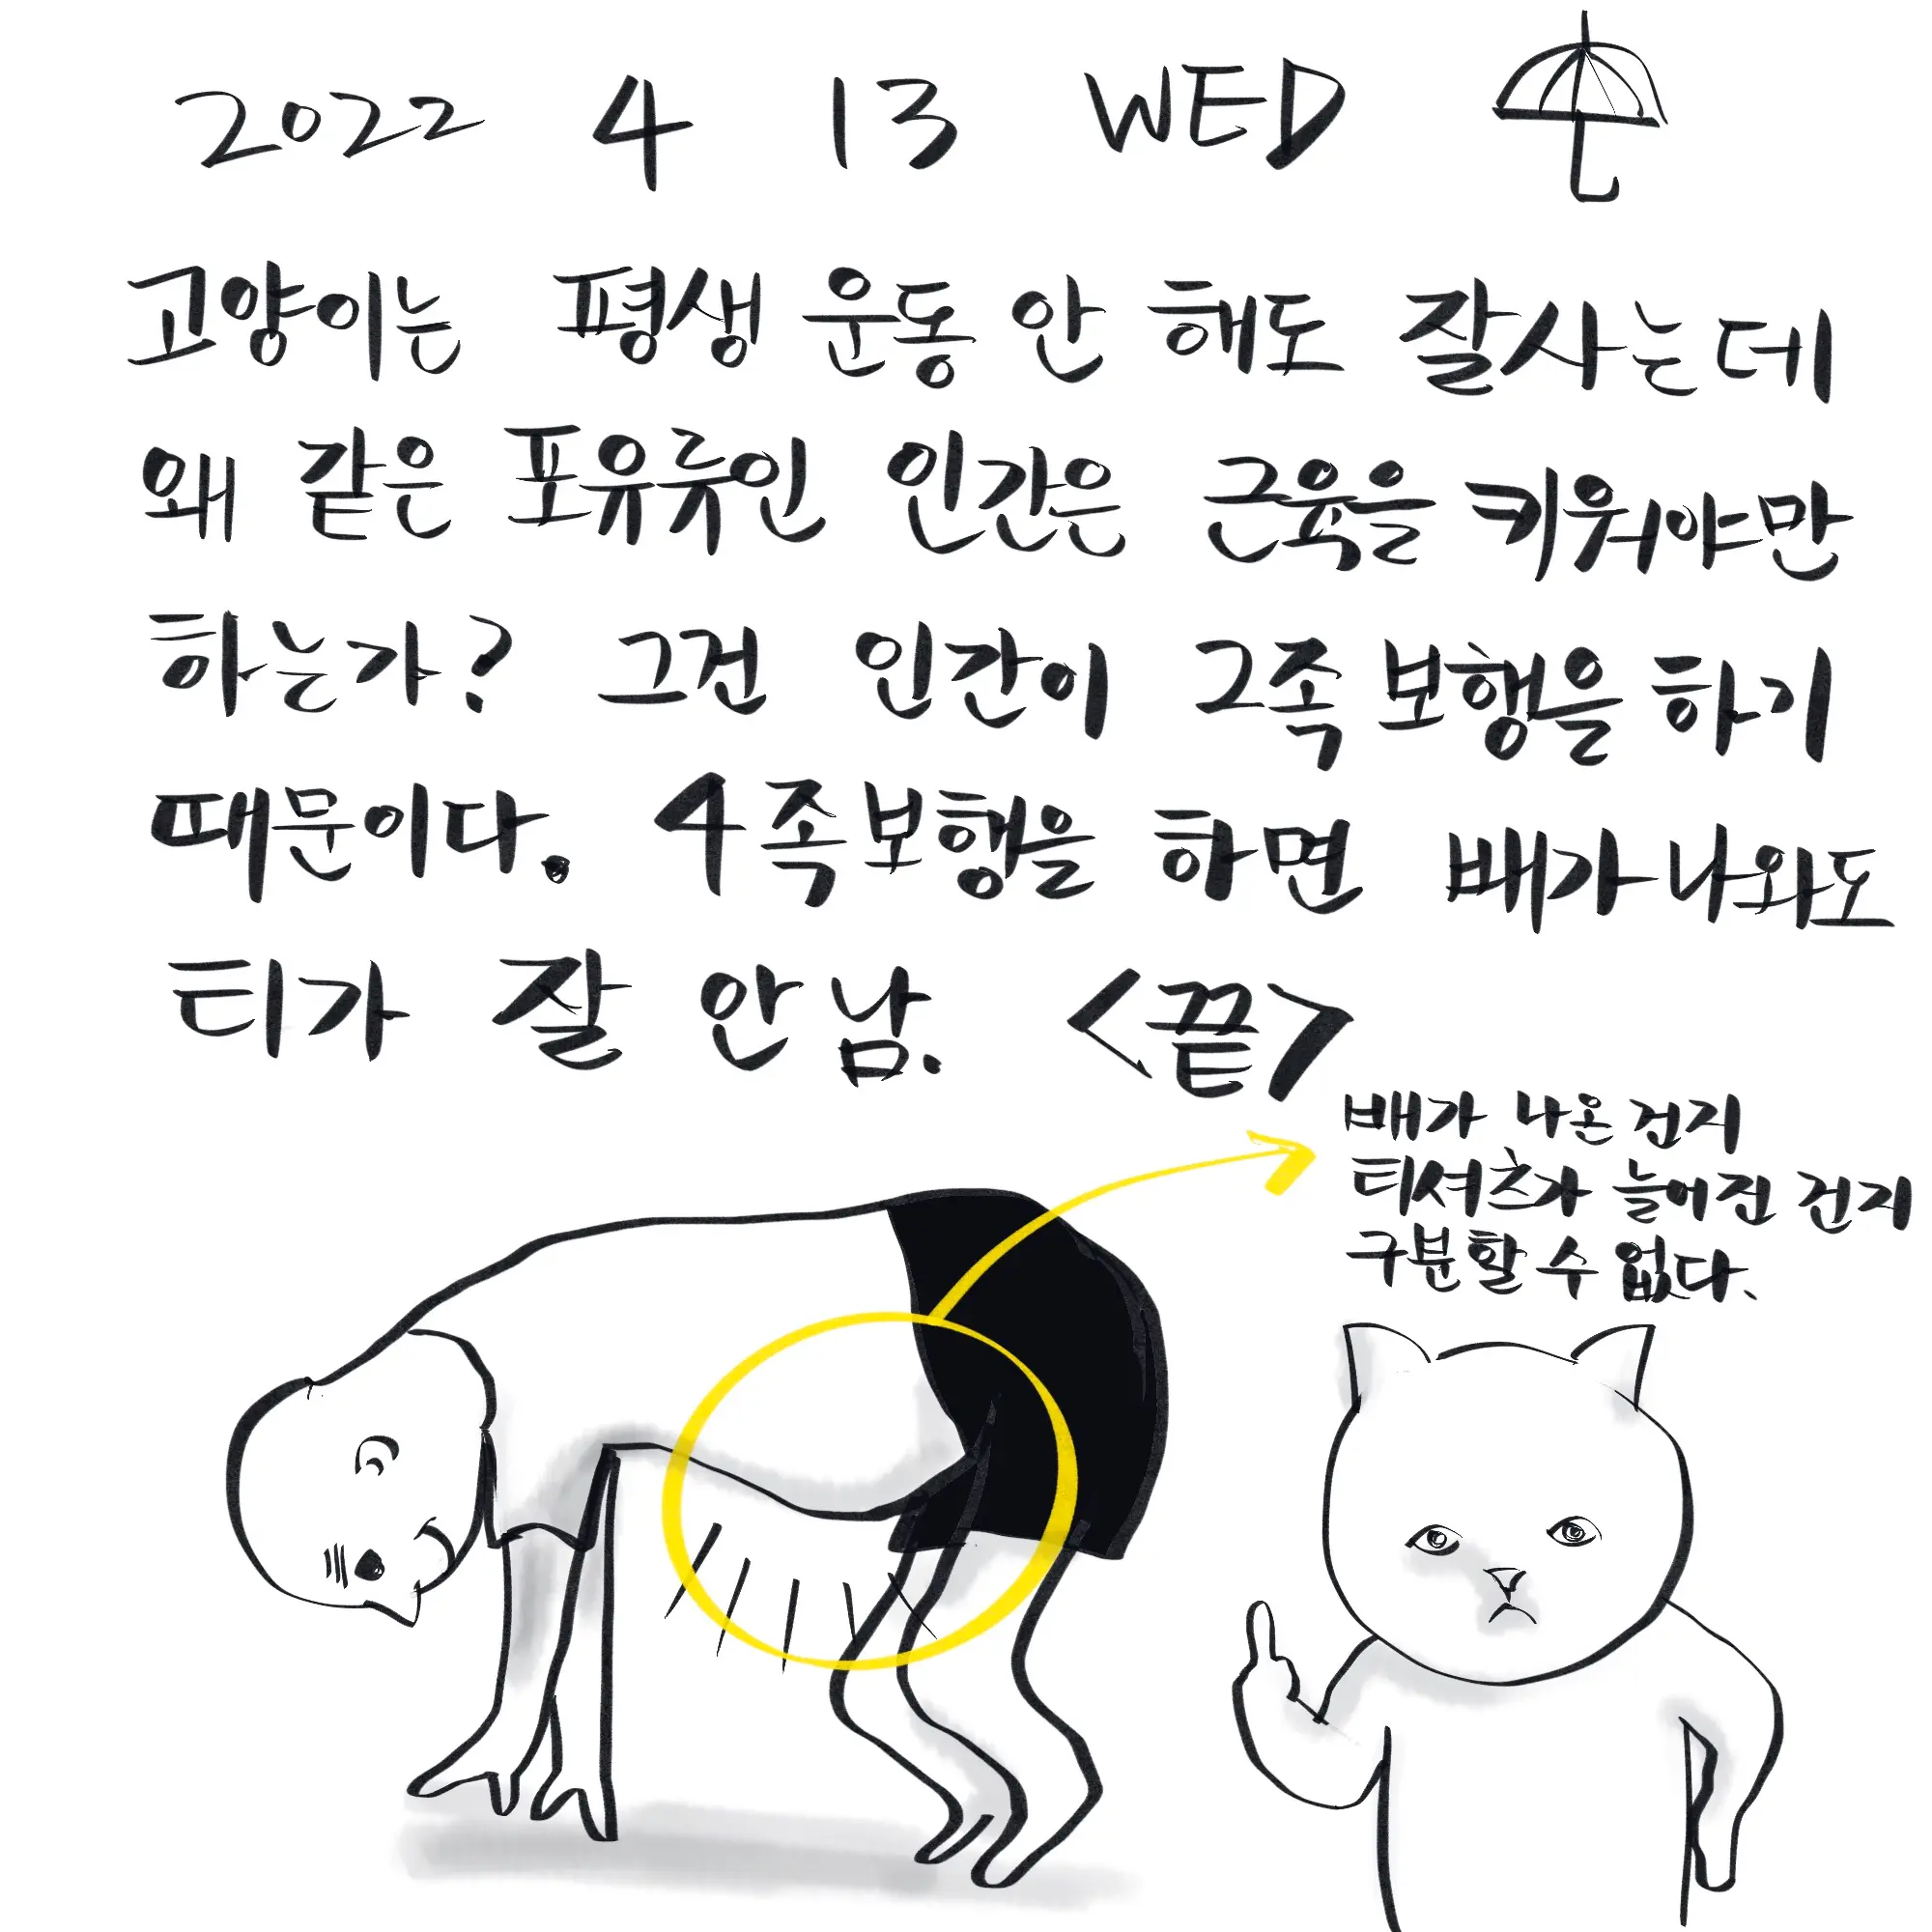 2022 4 13 WED
고양이는 평생 운동 안 해도 잘사는데
왜 같은 포유류인 인간은 근육을 키워야만
하는가? 그건 인간이 2족 보행을 하기
때문이다. 4족보행을 하면 배가 나와도
티가 잘 안 남. <끝>
배가 나온 건지
티셔츠가 늘어진 건지
구분할 수 없다.